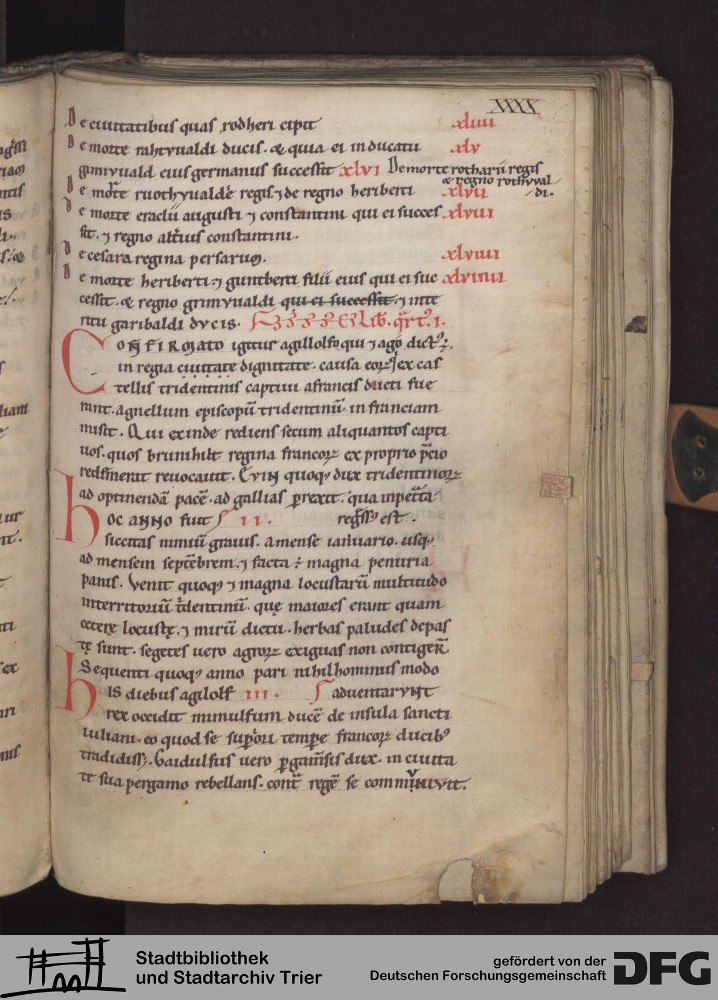 XXXX
De ciuitatibus quas rodheri cipit xluii
De morte rahtyualdi ducis. & quia ei in ducatu xlv
grimyuald eius germanus successit xlvi De morte rotharii regis
& regno rothyual
De morte ruothyualde regis ⁊ de regno heriberti xlvii di.
De morte eraclii augusti ⁊ constantini qui ei succes xlviii
sit. ⁊ regno alterius constantini.
De cesara regina persarum. xlviiii
De morte heriberti. ⁊ guntberti filii eius qui ei suc
cessit. & regno grimyualdi qui ei successit. ⁊ inte
ritu garibaldi ducis. Lib. qrt'. i.
COnfirmato igitur agilolfo qui ⁊ ago dict'.
in regia ciuitate dignitate. causa eorum ex cas
tellis tridentinis captiui a francis ducti fue
rant. agnellum episcopū tridentinū in franciam
misit. Qui exinde rediens secum aliquantos capti
uos. quos brunihilt regina francorum ex proprio p̄cio
redemerat reuocauit. Evin quoq; dux tridentinorum
ad optinendā pacē. ad gallias perrexit. qua inpetrata
hOC ANNO fuit II. regress' est.
siccitas nimiū grauis. a mense ianuario. usq;
ad mensem septēbrem. ⁊ facta ē magna penuria
panis. Venit quoq; ⁊ magna locustarū multitudo
in territoriū tridentinū. quę maiores erant quam
ceterę locustę. ⁊ mirū dictu. herbas paludes depas
tę sunt. segetes uero agrorum exiguas non contiger̄
Sequenti quoq; anno pari nihilhominus modo
hIS diebus agilolf III. aduentarvnt
rex occidit mimulfum ducē de insula sancti
iuliani. eo quod se superiori tempore francorum ducib'
tradidisset. Gaidulfus uero pergamensis dux. in ciuita
te sua pergamo rebellans. contra regē se communiuit.
Stadtbibliothek
und Stadtarchiv Trier
gefördert von der
Deutschen Forschungsgemeinschaft
DFG